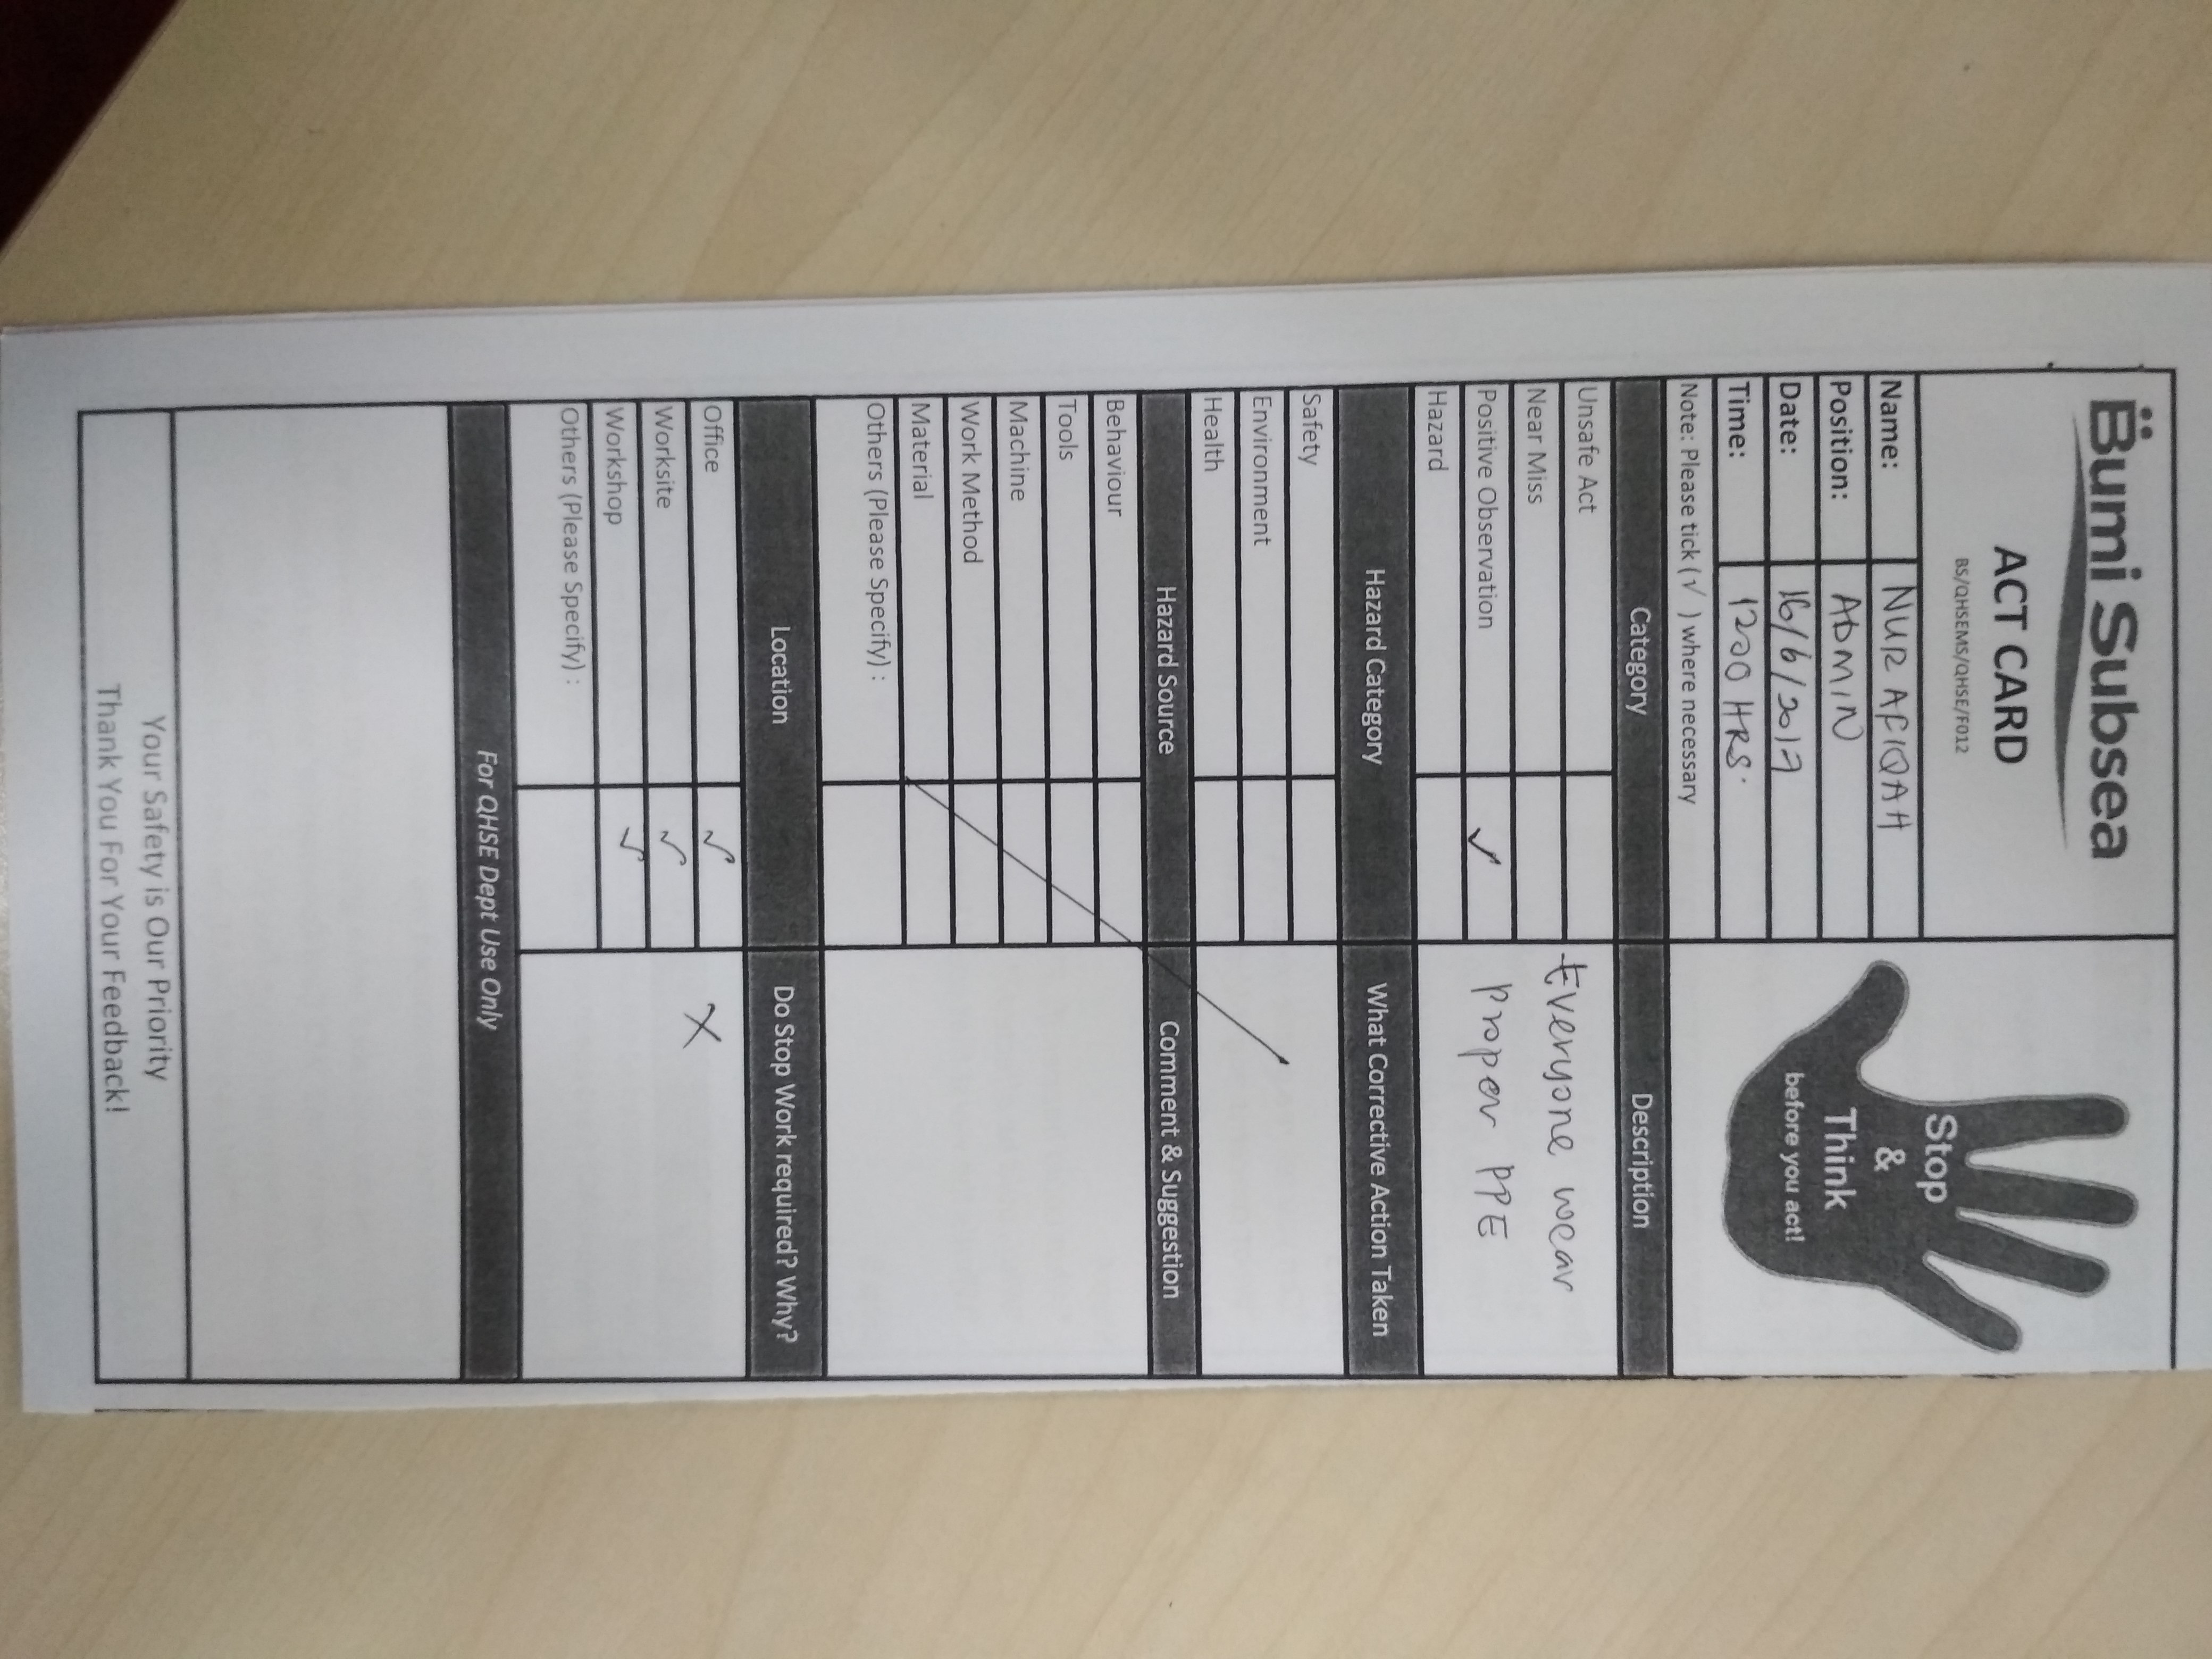 Bumi Subsea
ACT CARD
BS/QHSEMS/QHSE/F012
Stop
&
Think
before you act!
Name: NUR AFIQAH
Position: ADMIN
Date: 16/6/2017
Time: 1200 HRS.
Note: Please tick (√ ) where necessary
Category Description
Unsafe Act
Near Miss
Positive Observation ✓
Hazard
Everyone wear
proper PPE
Hazard Category What Corrective Action Taken
Safety
Environment
Health
Hazard Source Comment & Suggestion
Behaviour
Tools
Machine
Work Method
Material
Others (Please Specify) :
Location Do Stop Work required? Why?
Office ✓ X
Worksite ✓
Workshop ✓
Others (Please Specify) :
For QHSE Dept Use Only
Your Safety is Our Priority
Thank You For Your Feedback!